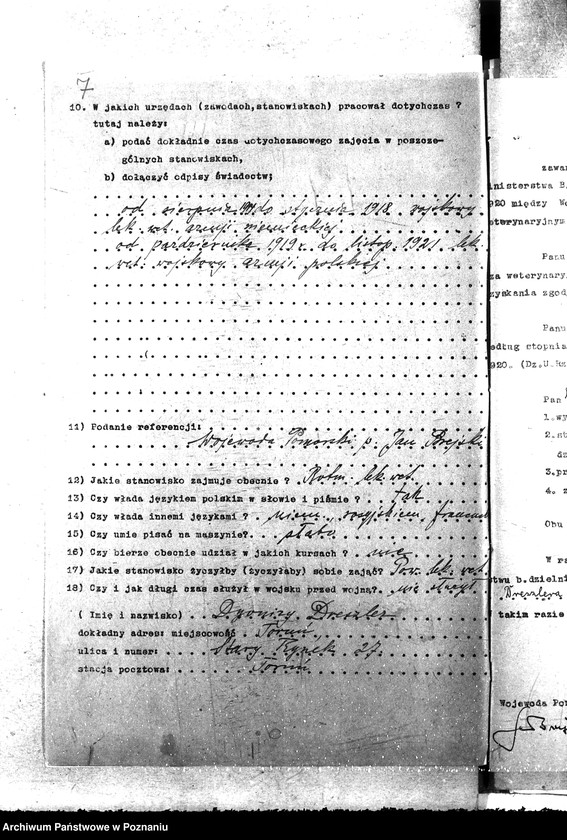 7
10. W jakich urzędach (zawodach, stanowiskach) pracował dotychczas ?
tutaj należy:
a) podać dokładnie czas dotychczasowego zajęcia w poszcze-
gólnych stanowiskach,
b) dołączyć odpisy świadectw;
od sierpnia do stycznia 1918 wojskowy
lek. wet. armji niemieckiej
od października 1919 r. do listop. 1921 lek.
wet. wojskowy armji polskiej
11) Podanie referencji:
Wojewoda Pomorski p. Jan Brejski
12) Jakie stanowisko zajmuje obecnie ? Rotm. lek. wet.
13) Czy włada językiem polskim w słowie i piśmie ? tak
14) Czy włada innemi językami ? niem., rosyjskiem
15) Czy umie pisać na maszynie?. słabo
16) Czy bierze obecnie udział w jakich kursach ? nie
17) Jakie stanowisko życzyłby (życzyłaby) sobie zająć? Pow. lek. wet.
18) Czy i jak długi czas służył w wojsku przed wojną?. nie służył
( Imię i nazwisko) Dyonizy Dreszler
dokładny adres: miejscowość Toruń
ulica i numer: Stary Rynek 27.
stacja pocztowa: Toruń
zawar
inisterstwa B.
920 między We
eterynaryjnym
Panu
za weterynary
zyskania zgod
Panu
edług stopnia
920. (Dz.U.Rz
Pan
1.wy
2.st
dz
3.pr
4. z
Obu
W ra
stwu b.dzielni
Dreszlera
takim razie
Wojewoda Pom
Archiwum Państwowe w Poznaniu